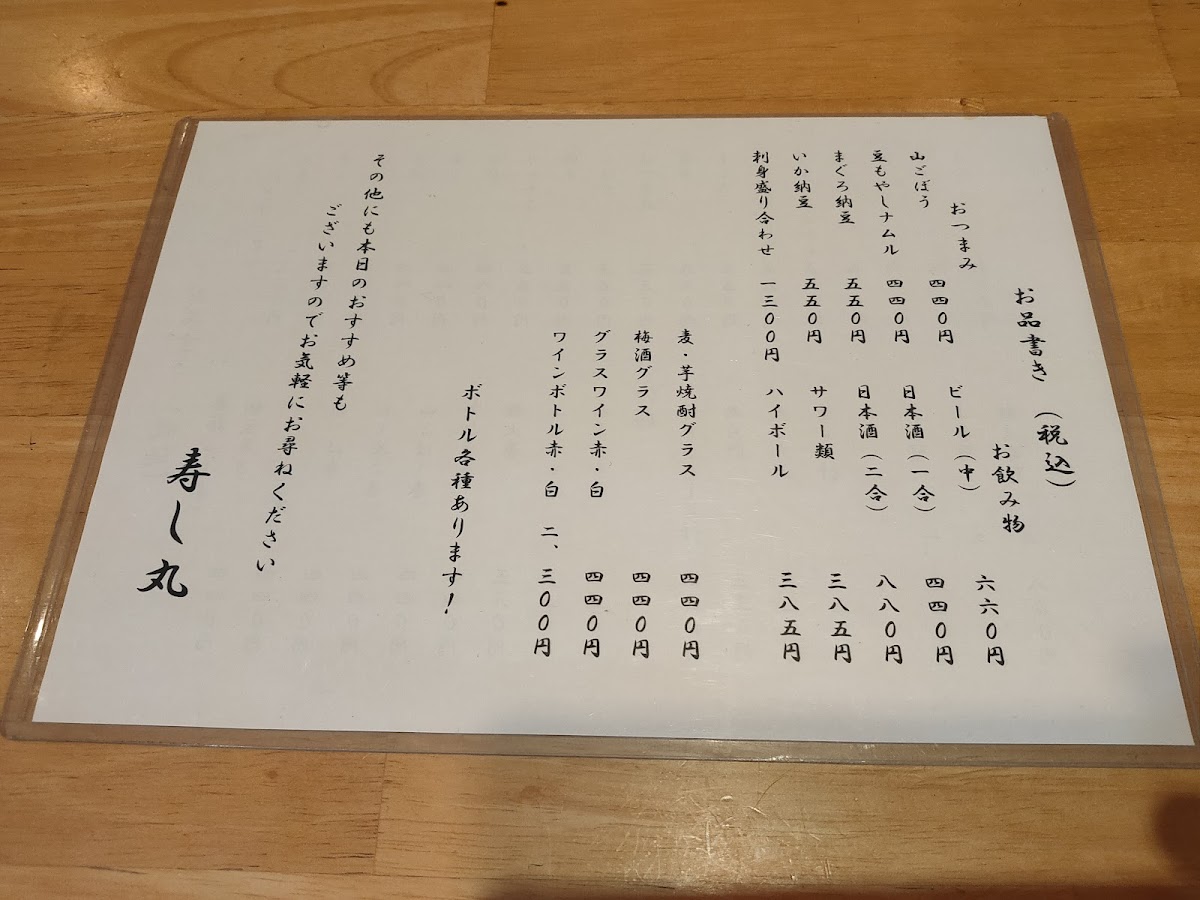 お品書き（税込）
おつまみ
山ごぼう 四四〇円
豆もやしナムル 四四〇円
まぐろ納豆 五五〇円
いか納豆 五五〇円
刺身盛り合わせ 一三〇〇円
お飲み物
ビール（中） 六六〇円
日本酒（一合） 四四〇円
日本酒（二合） 八八〇円
サワー類 三八五円
ハイボール 三八五円
麦・芋焼酎グラス 四四〇円
梅酒グラス 四四〇円
グラスワイン赤・白 四四〇円
ワインボトル赤・白 二、三〇〇円
ボトル各種あります！
その他にも本日のおすすめ等も
ございますのでお気軽にお尋ねください
寿し丸